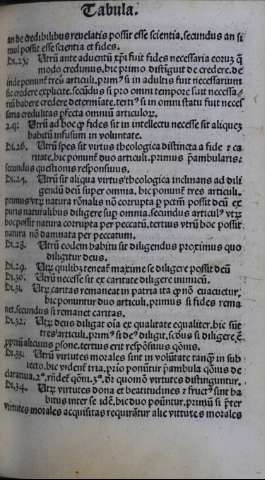 Tabula.
an de credibilibus reuelatis possit esse scientia, secundus an si
mul possit esse scientia et fides.
Di.23. Utrũ ante aduentũ xp̃i fuit fides necessaria eorũ q̃
modo credimus, hic primo distiguit de credere. de
inde ponunt̃ tres articuli, prim⁹ si in adultis fuit necessarium
sic credere explicite, secũdus si pro omni tempore fuit necessa⸗
riũ habere credere determiate, tert⁹ si in omni statu fuit neces
saria credulitas p̃fecta omniũ articulorũ.
24. Utrũ ad hoc q̃ fides sit in intellectu necesse sit aliquẽ
habitũ infusum in voluntate.
Di.26. Utrũ spes sit virtus theologica distincta a fide ⁊ ca
ritate, hic ponunt̃ duo articuli, primus p̃ambularis:
secundus questionis responsiuus.
Di.24. Utrũ sit aliqua virtus theologica inclinans ad dili
gendũ deũ super omnia, hic ponunt̃ tres articuli,
primus vtrũ natura rõnalis nõ corrupta p̃ pctm̃ possit deũ ex
puris naturalibus diligere sup omnia, secundus articul⁹ vtrũ
hoc possit natura corrupta per peccatũ, tertius vtrũ hoc possit
natura nõ damnata per peccatum.
Di.28. Utrũ eodem habitu sit diligendus proximus quo
diligitur deus.
Di.29. Utrũ quilibet teneat̃ maxime se diligere possit deũ
Di.30. Utrũ necesse sit ex caritate diligere inimicũ.
Di.31. Utrũ caritas remaneat in patria ita q̃ nõ euacuetur,
hic ponuntur duo articuli, primus si fides rema
net, secundus si remanet caritas.
Di.32. Utrũ deus diligat oĩa ex qualitate equaliter, hic sũt
tres articuli, prim⁹ si de⁹ diligit, scd̃us si diligere ẽ
p̃priũ alicuius p̃sone, tertius erit respõsiuus q̃onis.
Di.33. Utrũ virtutes morales sint in volũtate tanq̃ in sub
iecto, hic vident̃ tria, p̃rio ponũtur p̃ambula q̃õnis de
clarantia, 2º. rñdet̃ qõni, 3º. dr̃ quomõ virtutes distinguunt̃.
Di.34. Utrũ virtutes dona et beatitudines ⁊ fruct⁹ sint ha
bitus inter se idẽ, hic duo ponũtur, primũ si p̃ter
virtutes morales acquisitas requirãtur alie virtutes morales